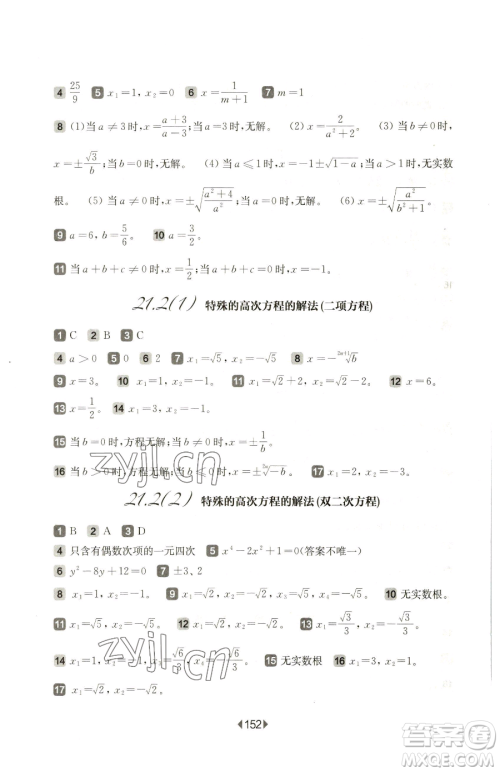 4 25/9 5 x₁=1, x₂=0 6 x=1/(m+1) 7 m=1
8 (1)当 a≠3 时,x=(a+3)/(a-3);当 a=3 时,无解。 (2) x=2/(a²+2)。 (3)当 b≠0 时,
x=±√3/b;当 b=0 时,无解。 (4)当 a⩽1 时,x=-1±√(1-a);当 a>1 时,无实数
根。 (5)当 a≠0 时,x=±√((a²+4)/a²);当 a=0 时,无解。 (6) x=±√(a²/(b²+1))。
9 a=6, b=5/6。 10 a=3/2。
11 当 a+b+c≠0 时,x=1;当 a+b+c=0 时,无解。
21.2(1) 特殊的高次方程的解法(二项方程)
1 C 2 B 3 C
4 a>0 5 0 6 2 7 x₁=√5, x₂=-√5 8
9 x=3。 10 x₁=1, x₂=-1。 11 x₁=√2+2, x₂=-√2+2。 12 x=6。
13 x=1/2。 14 x₁=3, x₂=-3。
15 当 b=0 时,方程无解;当 b≠0 时,x=±1/b。
16 当 b>0 时,方程无解;当 b⩽0 时, 17 x₁=2, x₂=-3。
zyjl.cn
21.2(2) 特殊的高次方程的解法(双二次方程)
1 B 2 A 3 D
4 只含有偶数次项的一元四次 5 x⁴-2x²+1=0(答案不唯一)
6 y²-8y+12=0 7 ±3、2
8 x₁=1, x₂=-1。 9 x₁=√2, x₂=-√2。 10 无实数根。
11 x₁=√5, x₂=-√5。 12 x₁=√2, x₂=-√2。 13 x₁=√3/3, x₂=-√3/3。
14 x₁=1, x₂=-1, x₃=√6/3, x₄=-√6/3。 15 无实数根 16 x₁=1, x₂=-1。
17 x₁=√2, x₂=-√2。
zyjl.cn
152
答案圈
MXQE.COM